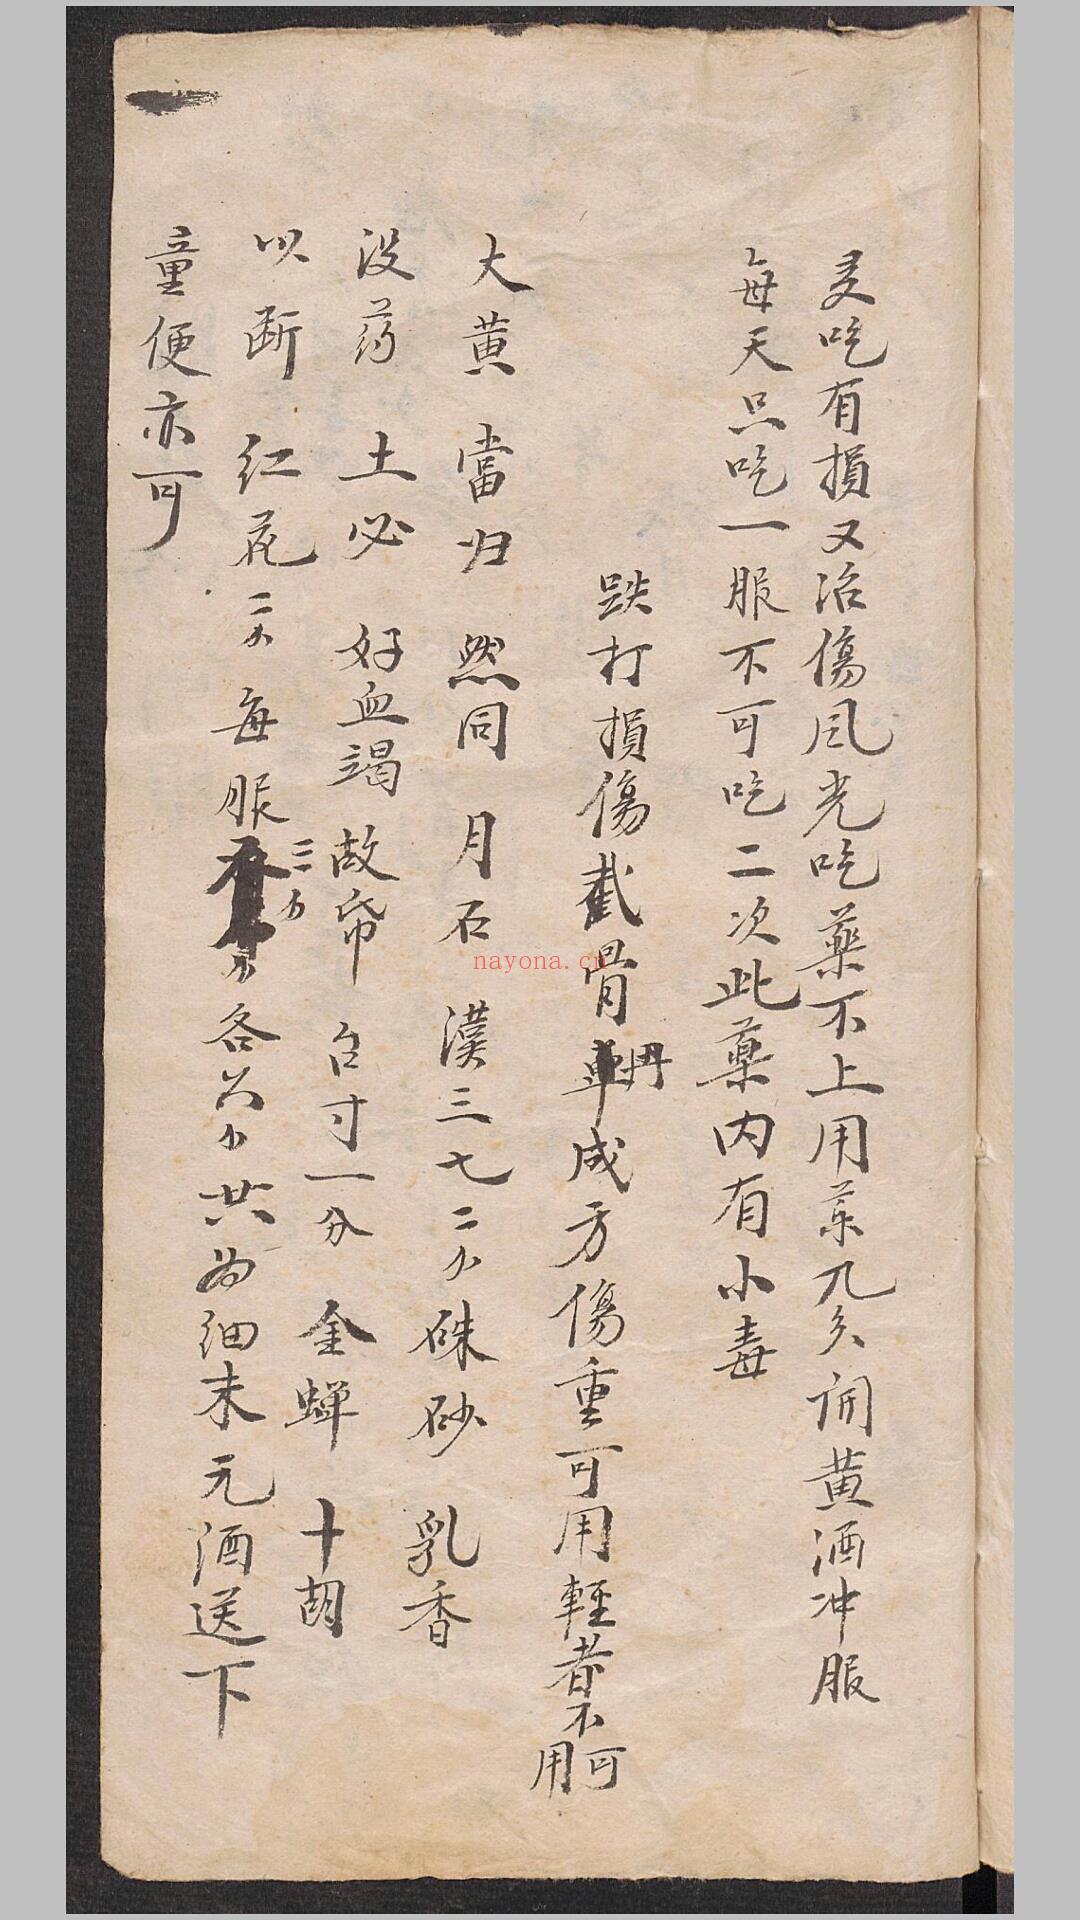 吃有損又治傷风光吃藥不上用菜几久開黄酒冲服
每天只吃一服不可吃二次此藥内有小毒
跌打損傷截骨丹成方傷重可用輕者不可用
大黄 當归 然同 月石 漢三七二 硃砂 乳香
没药 土必 好血竭 故帋 台寸一分 金蝉 十胡
以断 红花二 每服三 各六 共为细末元酒送下
童便亦可
nayona.cn